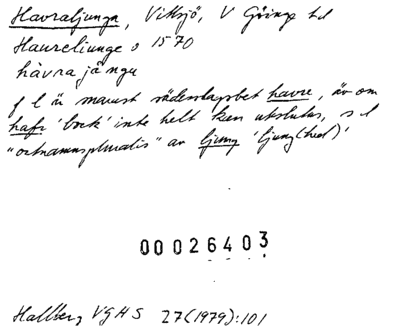 Havraljunga, Vittsjö, V Göinge hd
Havreliunge s 1570
håvra jånga
f l är manst sädesslagsbet havre, äv om
hafr 'bock' inte helt kan uteslutas, s l
"ortnamnspluralis" av ljung 'ljung(hed)'
00026403
Hallberg VGHS 27(1979):101